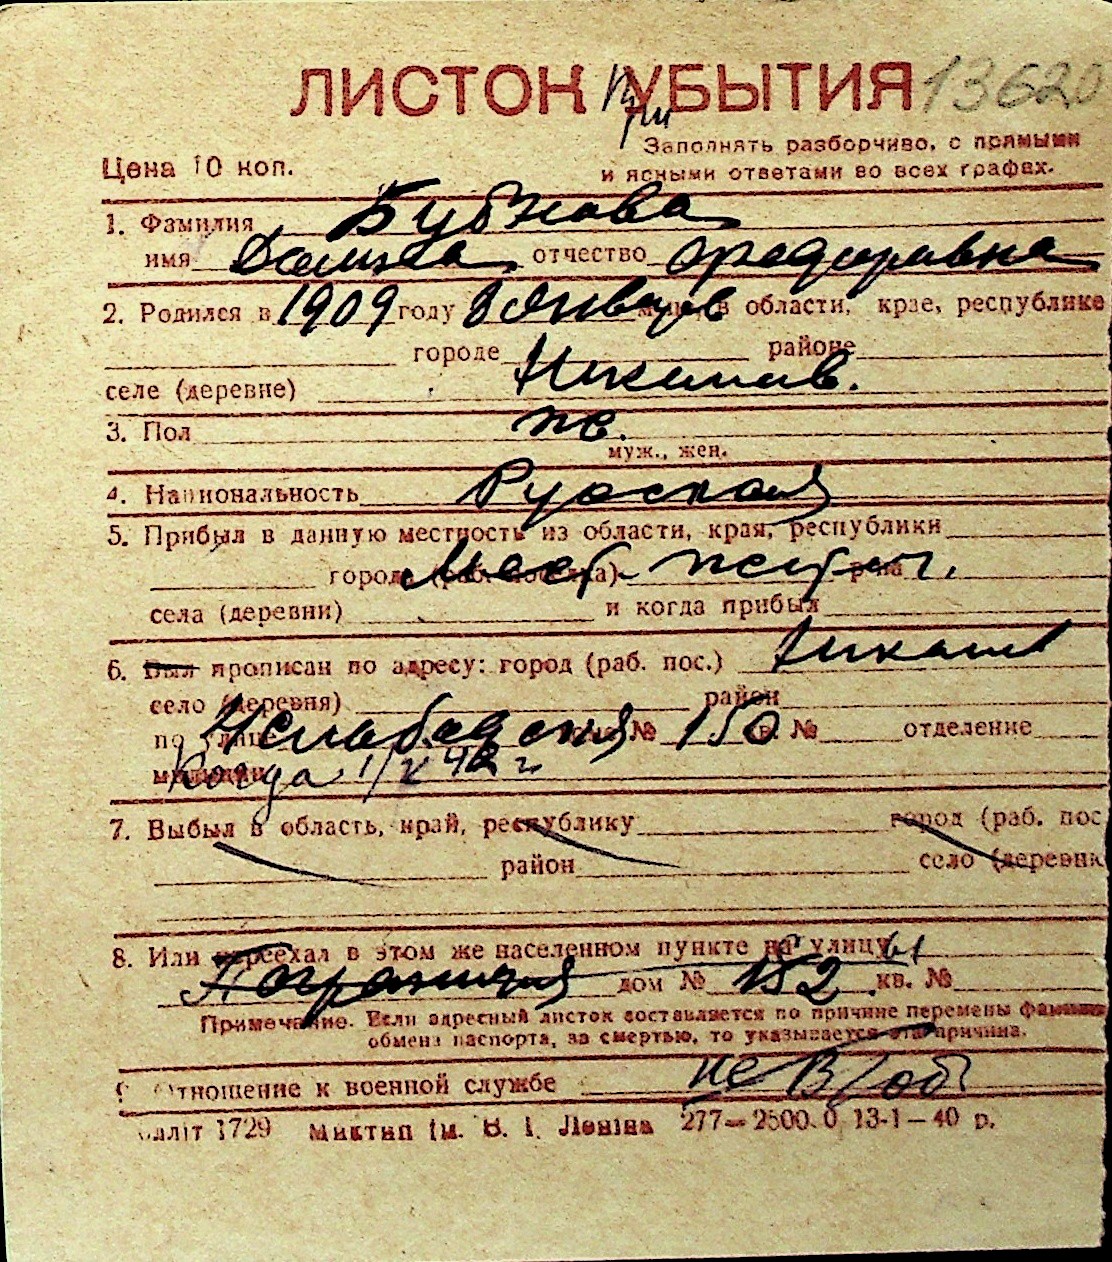 ЛИСТОК УБЫТИЯ 13620
При
Заполнять разборчиво, с прямыми
Цена 10 коп. и ясными ответами во всех графах.
1. Фамилия Бубнова
имя отчество Федоровна
2. Родился в 1909 году 8 Января м-це, в области, крае, республике
городе районе
селе (деревне) Николаев.
3. Пол ж.
муж., жен.
4. Национальность Русская
5. Прибыл в данную местность из области, края, республики
города (раб. поселка) Мест. жит. р-на
села (деревни) и когда прибыл
6. Был прописан по адресу: город (раб. пос.) Николаев
село (деревня) район
по улице Слободская дом № 150 кв. № отделение
милиции Когда 1/V 42 г
7. Выбыл в область, край, республику город (раб. пос
район село (деревня
8. Или переехал в этом же населенном пункте на улицу
Погранична дом № 152 кв. №
Примечание. Если адресный листок составляется по причине перемены фамилии
обмена паспорта, за смертью, то указывается эта причина.
9. Отношение к военной службе не в/об
Облліт 1729 Миктип ім. В. І. Леніна 277—2500.0 13-1—40 р.